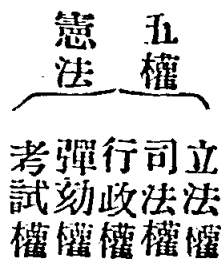 五權
憲法
立法權
司法權
行政權
彈劾權
考試權